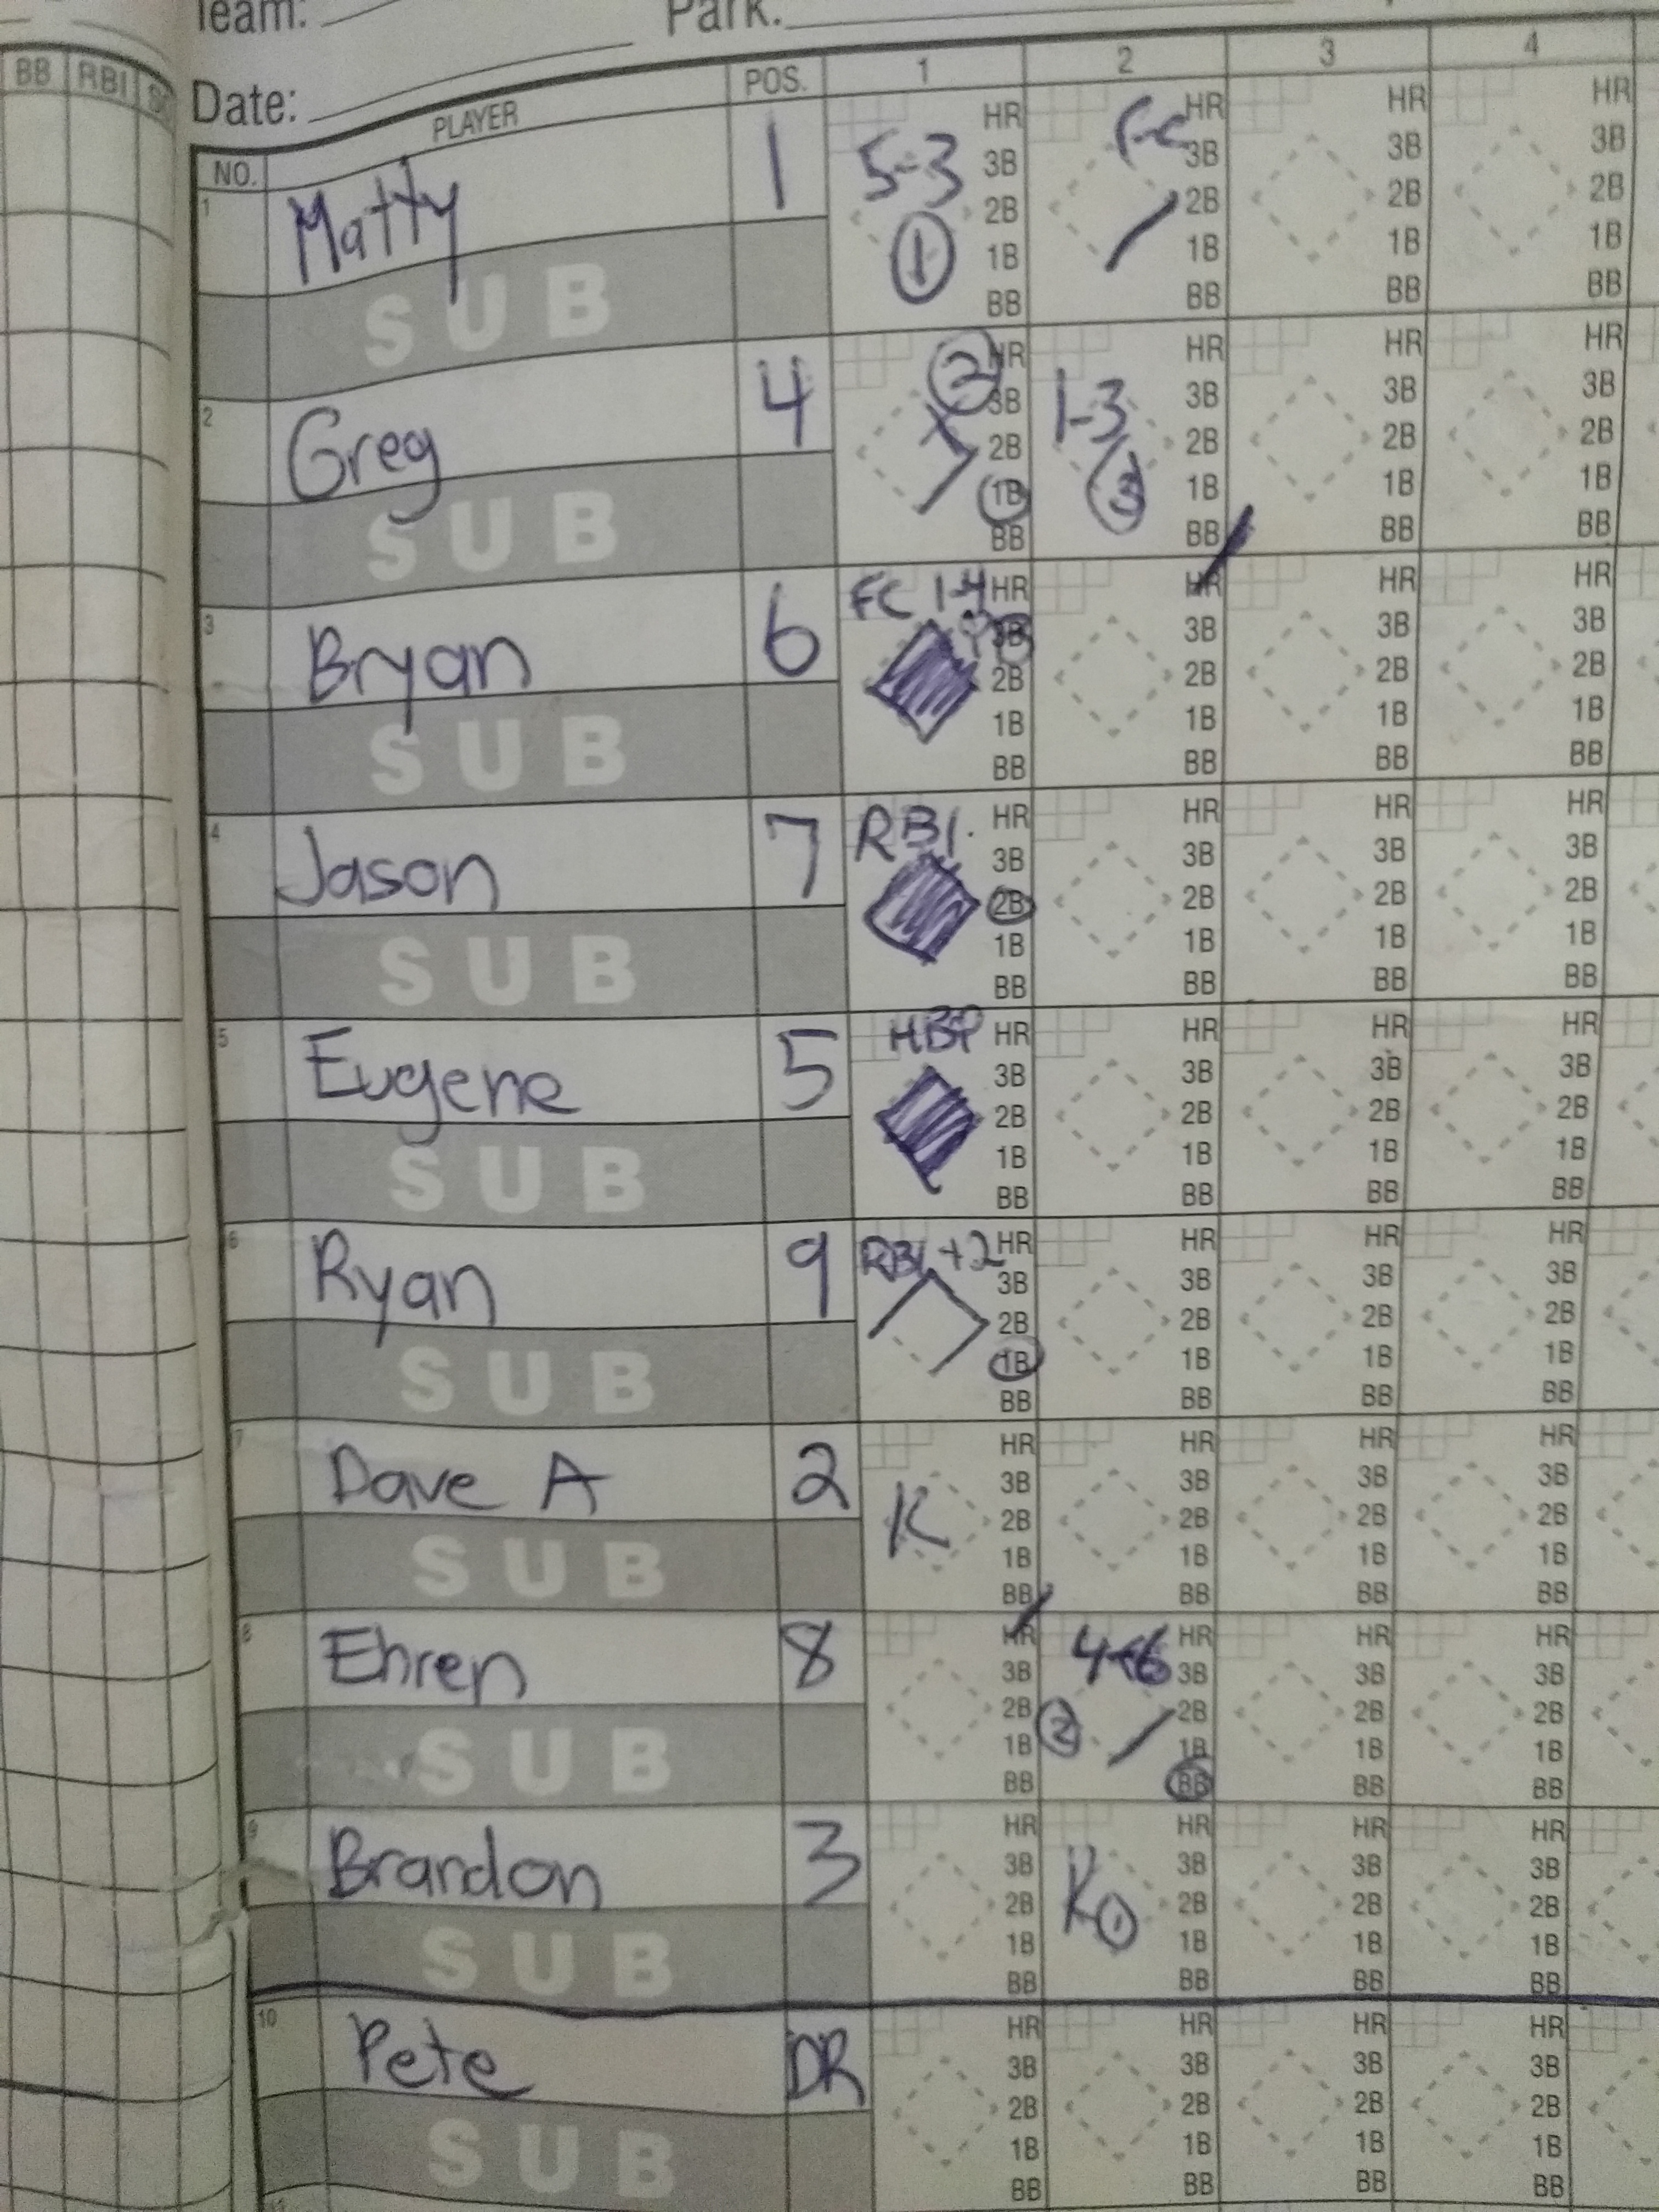 Team: Park:
Date:
BB RBI
NO. PLAYER POS. 1 2 3 4
1 Matty 1 5-3 ① F-C
HR 3B 2B 1B BB HR 3B 2B 1B BB HR 3B 2B 1B BB HR 3B 2B 1B BB
SUB
2 Greg 4 ② 1-3 ③
HR 3B 2B 1B BB HR 3B 2B 1B BB HR 3B 2B 1B BB HR 3B 2B 1B BB
SUB
3 Bryan 6 FC 1-4
HR 3B 2B 1B BB HR 3B 2B 1B BB HR 3B 2B 1B BB HR 3B 2B 1B BB
SUB
4 Jason 7 RBI.
HR 3B 2B 1B BB HR 3B 2B 1B BB HR 3B 2B 1B BB HR 3B 2B 1B BB
SUB
5 Eugene 5 HBP
HR 3B 2B 1B BB HR 3B 2B 1B BB HR 3B 2B 1B BB HR 3B 2B 1B BB
SUB
6 Ryan 9 RBI +2
HR 3B 2B 1B BB HR 3B 2B 1B BB HR 3B 2B 1B BB HR 3B 2B 1B BB
SUB
7 Dave A 2 K
HR 3B 2B 1B BB HR 3B 2B 1B BB HR 3B 2B 1B BB HR 3B 2B 1B BB
SUB
8 Ehren 8 4-6 ②
HR 3B 2B 1B BB HR 3B 2B 1B BB HR 3B 2B 1B BB HR 3B 2B 1B BB
SUB
9 Brandon 3 K ①
HR 3B 2B 1B BB HR 3B 2B 1B BB HR 3B 2B 1B BB HR 3B 2B 1B BB
SUB
10 Pete DR
HR 3B 2B 1B BB HR 3B 2B 1B BB HR 3B 2B 1B BB HR 3B 2B 1B BB
SUB